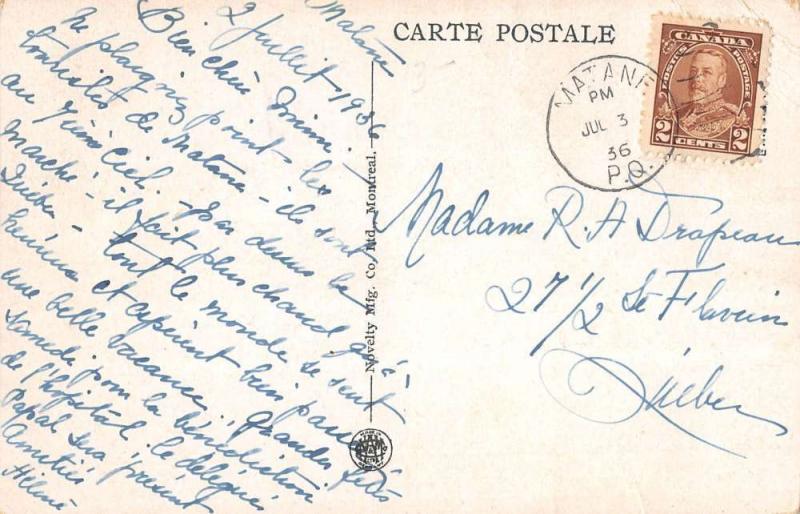 Matane
2 Juillet 1936
Bien chère Mimi
Ne plaignez point les
touristes de Matane - ils sont
au 7ième ciel - pas dans le
marché - il fait plus chaud qu'à
Québec - tout le monde se sent
heureux et espèrent bien passer
une belle vacance. Grandes fêtes
samedi pour la bénédiction
de l'hôpital. Le délégué
Papal sera présent
Amitiés
Hélène
Novelty Mfg. Co. Ltd., Montreal.
CARTE POSTALE
MATANE
PM
JUL 3
36
P.Q.
CANADA
POSTES POSTAGE
2 CENTS 2
Madame R. A Drapeau
27 1/2 St Flavien
Québec